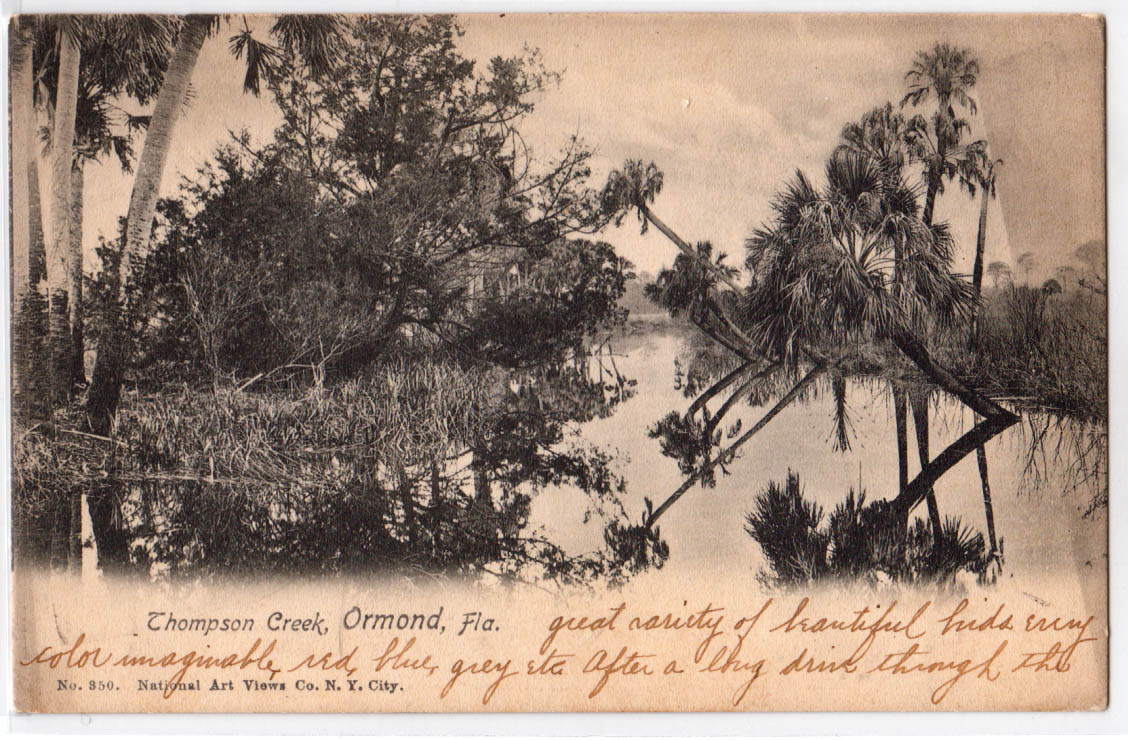 Thompson Creek, Ormond, Fla.
great variety of beautiful birds every
color imaginable, red, blue, grey etc After a long drive through the
No. 350. National Art Views Co. N. Y. City.